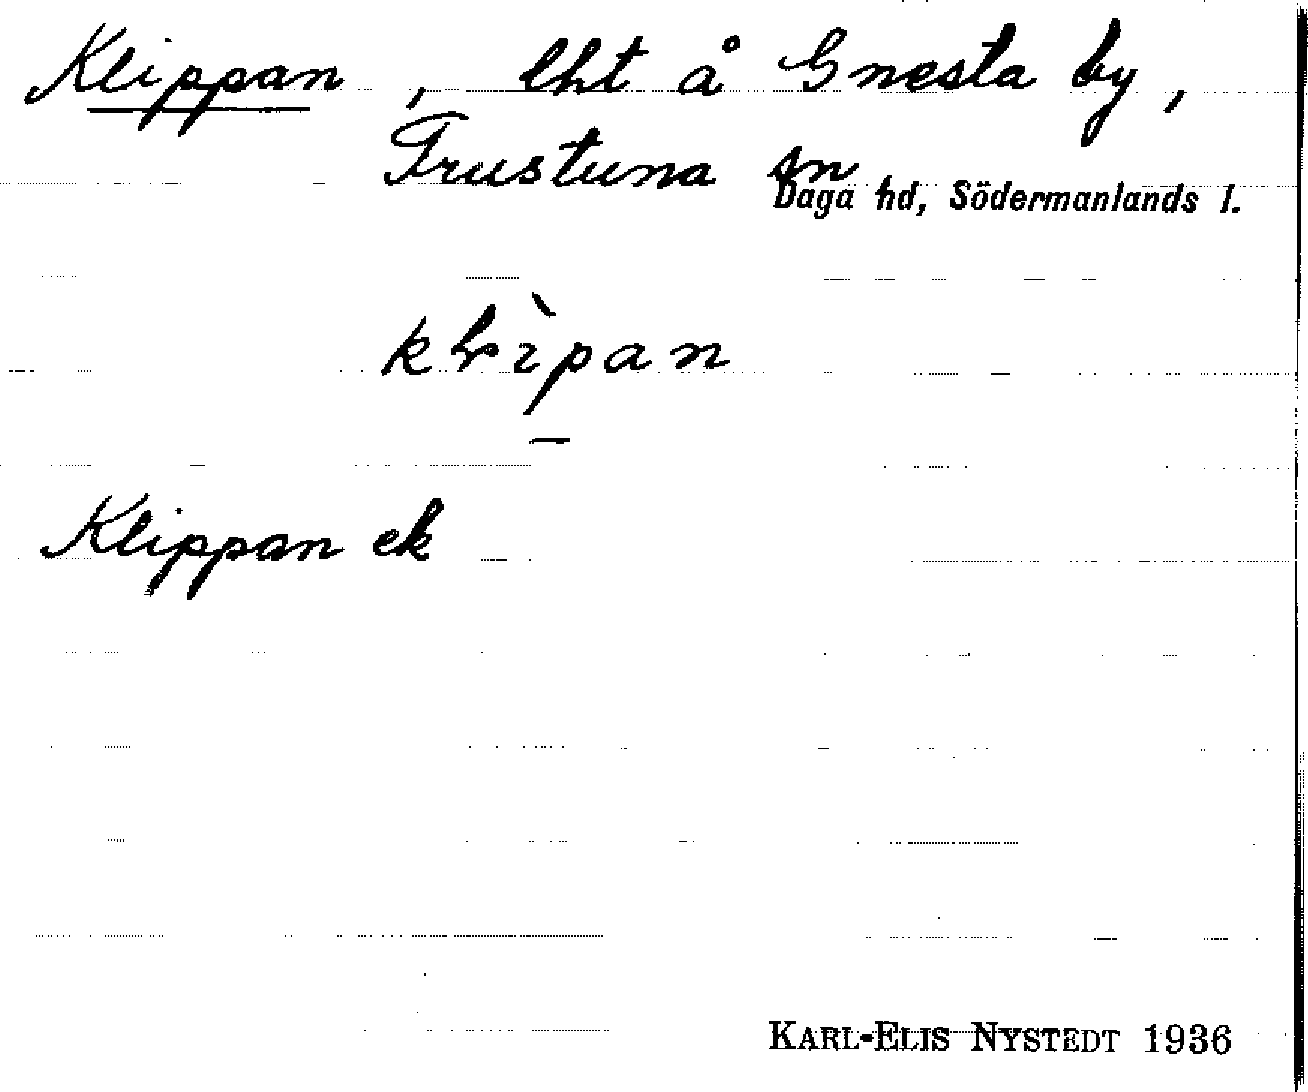 Klippan, lht å Gnesta by,
Frustuna sn
Daga hd, Södermanlands l.
klìpan
Klippan ek
KARL-ELIS NYSTEDT 1936